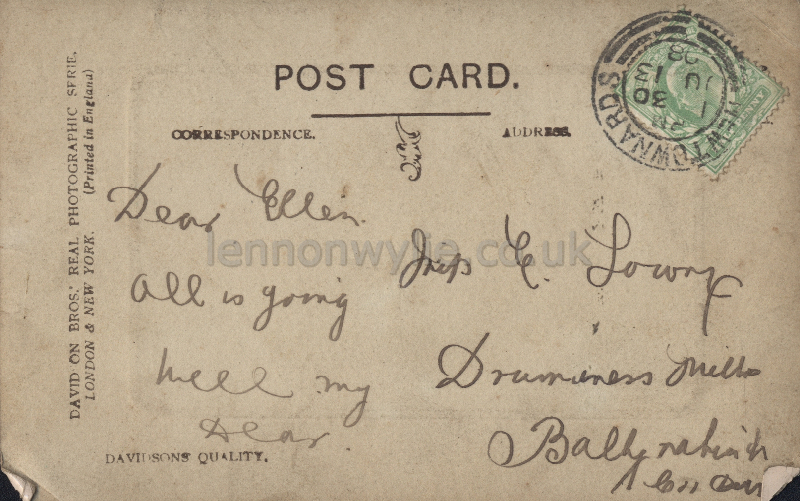 POST CARD.
CORRESPONDENCE.
ADDRESS.
DAVIDSON BROS.' REAL PHOTOGRAPHIC SERIE.
LONDON & NEW YORK. (Printed in England)
NEWTOWNARDS
JU 1
lennonwylie.co.uk
Dear Ellen
All is going
well my
Dear.
Miss E. Lowry
Drumaness Mills
Ballynahinch
Co Down
DAVIDSONS QUALITY.